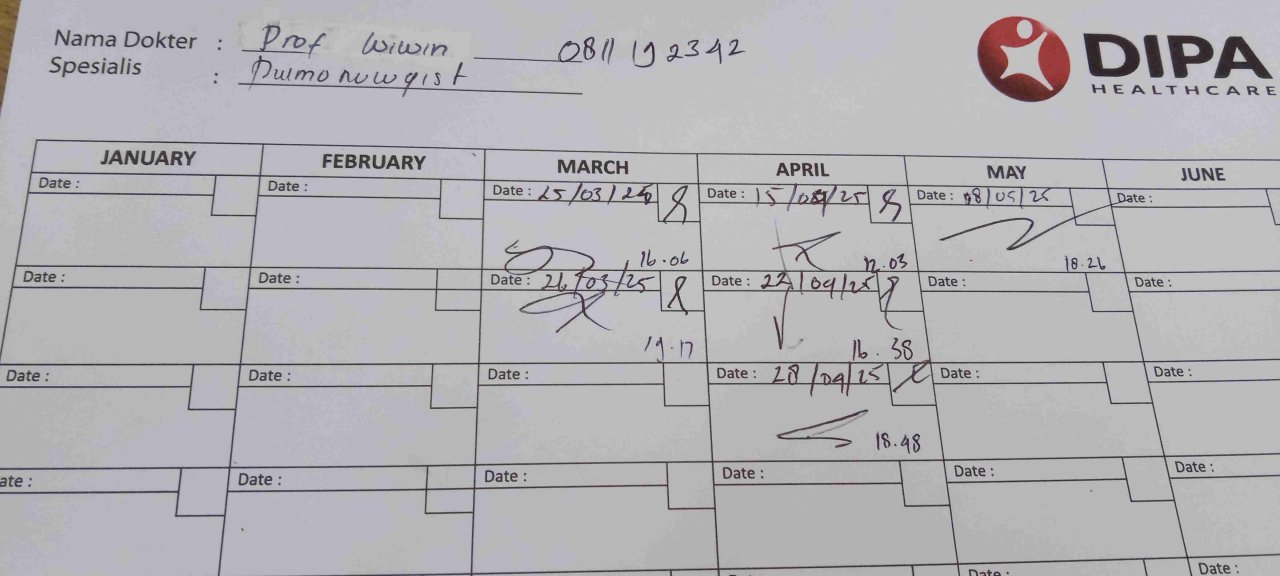 Nama Dokter : Prof Wiwin 0811 19 2342
Spesialis : Pulmonologist
DIPA
HEALTHCARE
JANUARY FEBRUARY MARCH APRIL MAY JUNE
Date : Date : Date : 25/03/25 Date : 15/04/25 Date : 08/05/25 Date :
16.06 12.03 18.26
Date : Date : Date : 26/03/25 Date : 22/04/25 Date : Date :
19.17 16.38
Date : Date : Date : Date : 28/04/25 Date : Date :
18.48
ate : Date : Date : Date : Date : Date :
Date : Date : Date :